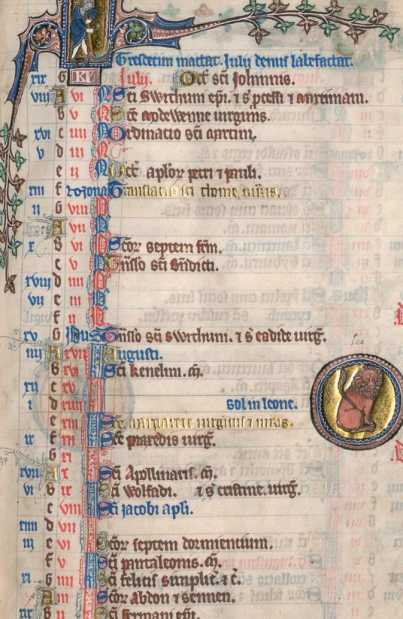 Tresdecim mactat. Julij denus labefactat.
xix G KL Julij. Oct' sci Johannis.
viii A vi N Sci Swithuni epi. ⁊ s' pcessi ⁊ martiniani.
b v N Sce modewenne uirginis.
xvi c iiii N Ordinatio sci martini.
v d iii N
e ii N Oct' aplor petri ⁊ pauli.
xiii f nonas Translatio sci thome mris.
ii G viii
A vii
x b vi Scor septem frm.
c v Tnslo sci bndicti.
xviii d iiii
vii e iii
f ii
xv G Idus Tnslo sci swithuni. ⁊ s' eadide uirg.
iiii A xvii Augusti.
b xvi Sci kenelmi. m.
xii c xv
i d xiiii Sol in leone.
e xiii Sce margarete uirginis ⁊ mris.
ix f xii Sce praxedis uirg.
xvii A x Sci Apollinaris. m.
vi b ix Sci Wolfadi. ⁊ s' cristine. uirg.
c viii Sci jacobi apli.
xiiii d vii
iii e vi Scor septem dormientium.
f v Sci pantaleonis. m.
xi G iiii Sci felicis simplic'. ⁊ c.
A iii Scor Abdon ⁊ sennen.
xix b ii Sci germani epi.